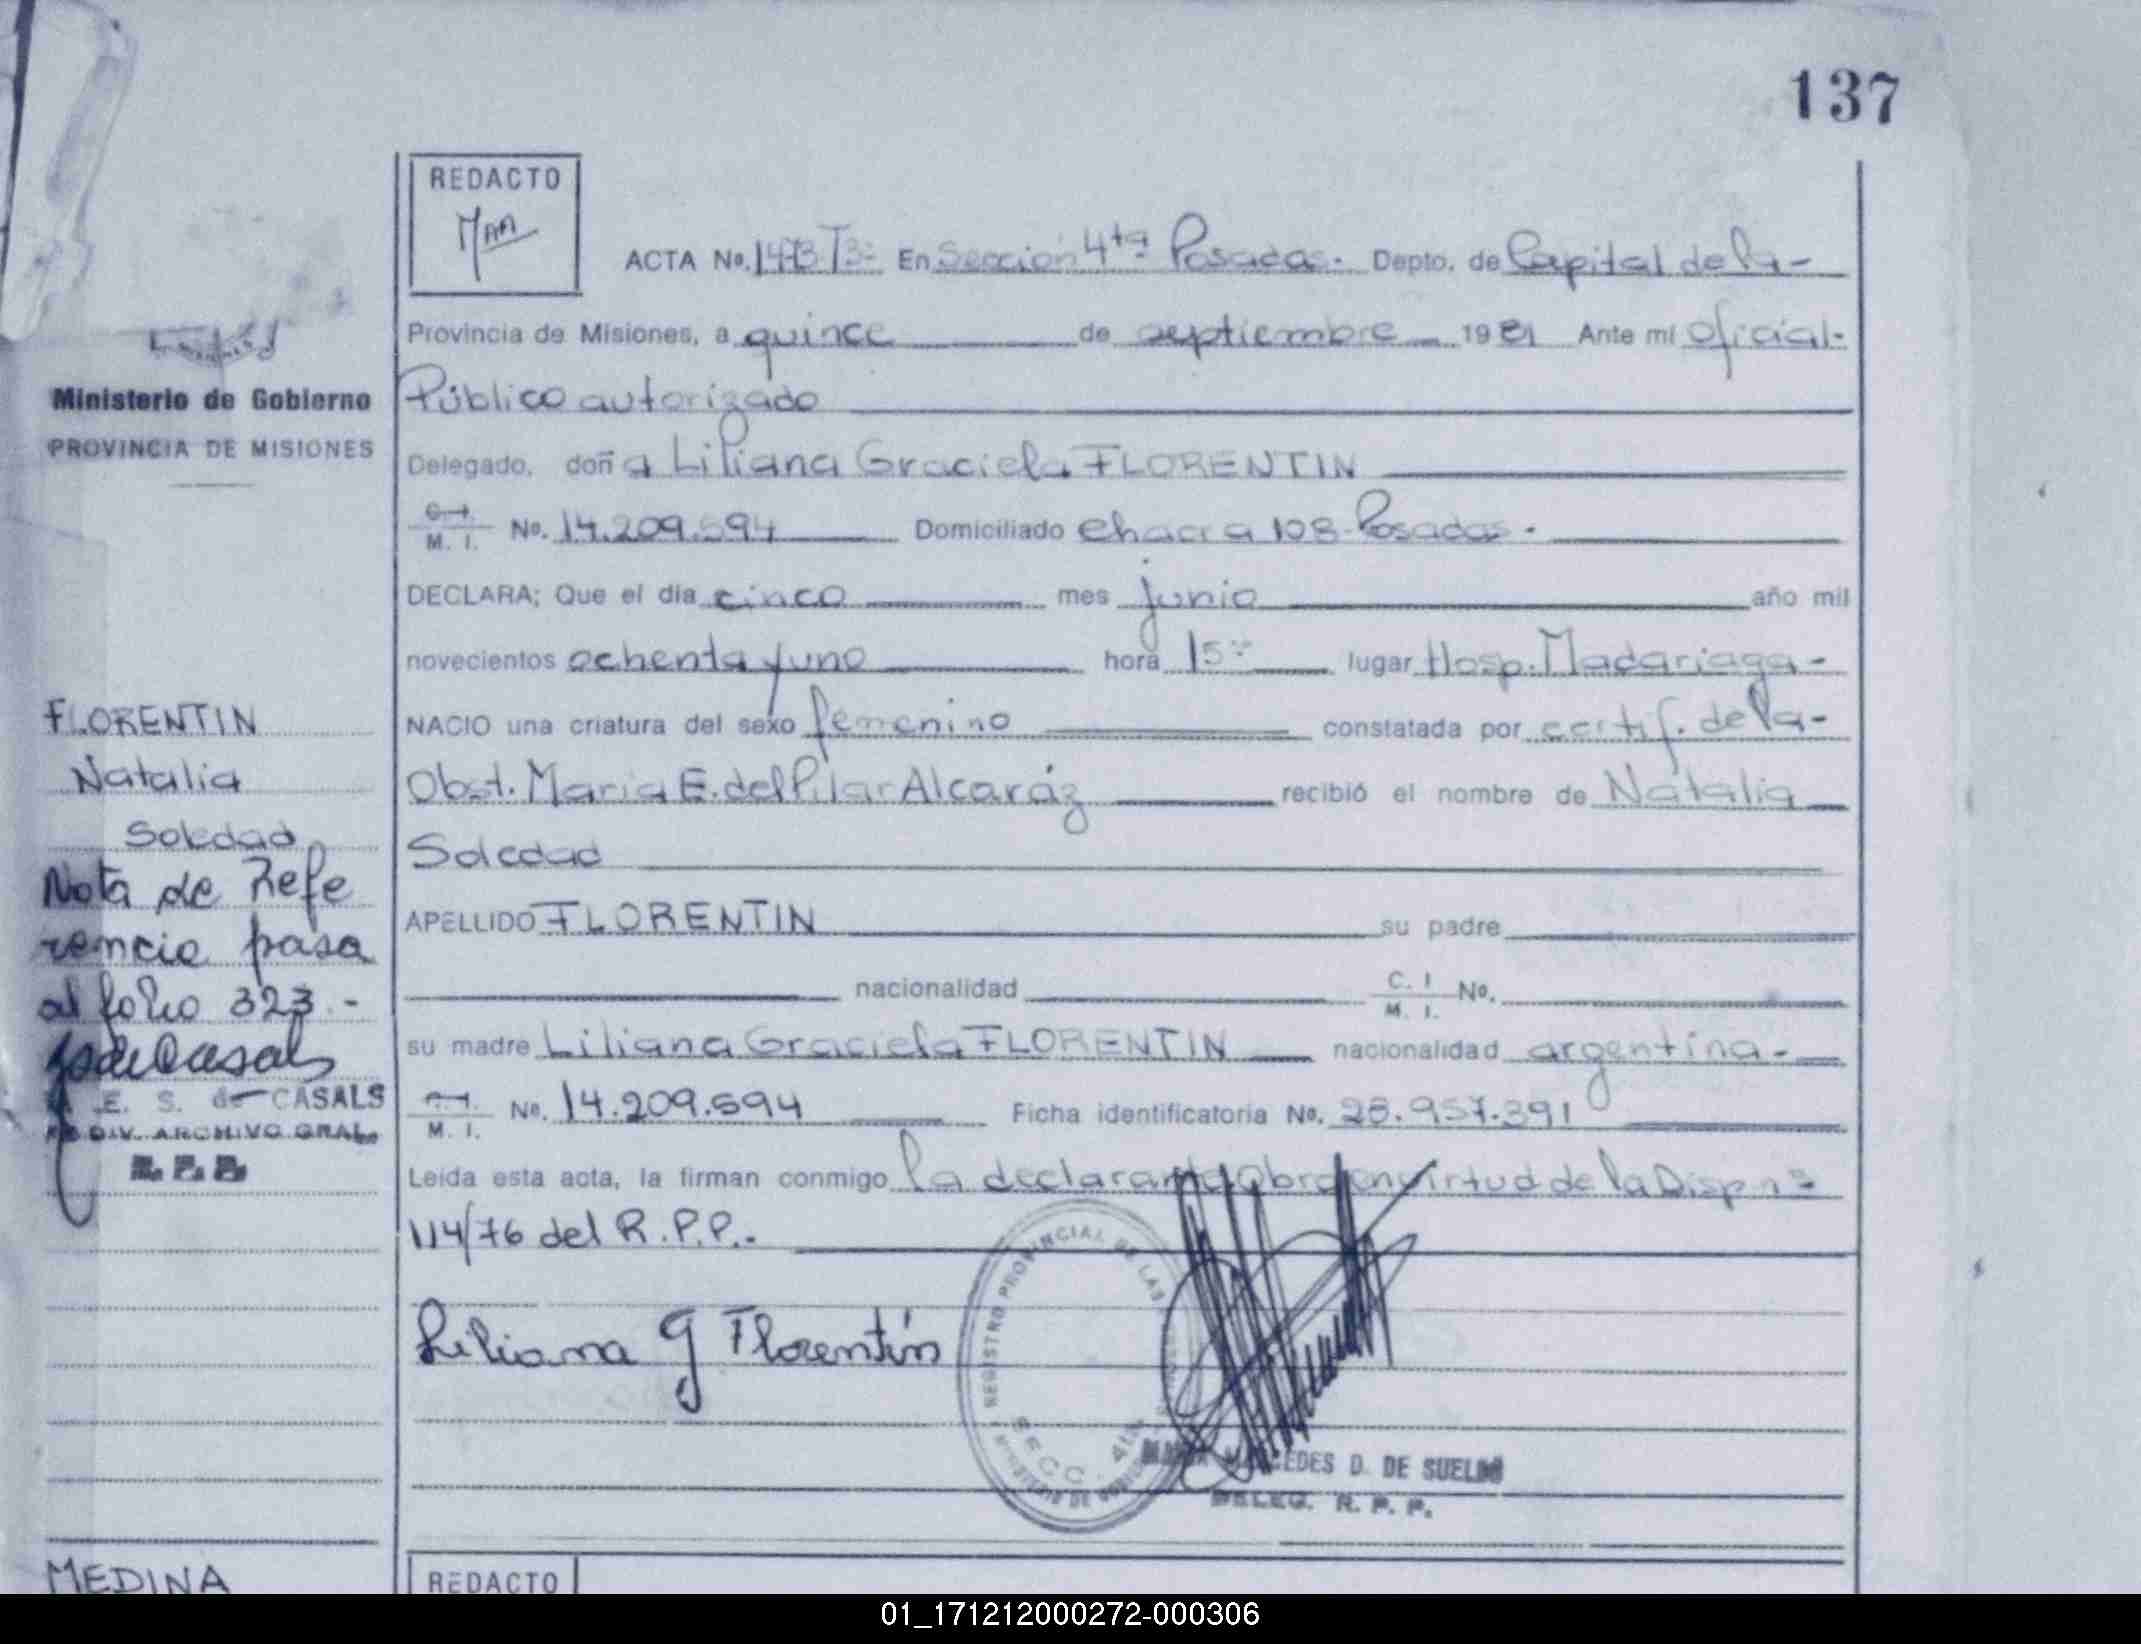 137
REDACTO
ACTA No. 1473 T3º En Sección 4ta Posadas.- Depto. de Capital de la-
Provincia de Misiones, a quince de septiembre 1981 Ante mí Oficial-
Público autorizado
Delegado, doña Liliana Graciela FLORENTIN
M. I. No. 14.209.594 Domiciliado Chacra 108-Posadas-
DECLARA; Que el día cinco mes junio año mil
novecientos ochenta y uno hora 15 lugar Hosp. Madariaga-
NACIO una criatura del sexo femenino constatada por certif. de la-
Obst. Maria E. del Pilar Alcaráz recibió el nombre de Natalia
Soledad
APELLIDO FLORENTIN su padre
nacionalidad C. I. M. I. No.
su madre Liliana Graciela FLORENTIN nacionalidad argentina-
M. I. No. 14.209.594 Ficha identificatoria No. 28.957.391
Leída esta acta, la firman conmigo la declarante Obro en virtud de la Disp nº
114/76 del R.P.P.-
Liliana G Florentín
REGISTRO PROVINCIAL DE LAS
SECC. 4ta
MERCEDES D. DE SUELDO
DELEG. R. P. P.
Ministerio de Gobierno
PROVINCIA DE MISIONES
FLORENTIN
Natalia
Soledad
Nota de Refe
rencia pasa
al folio 323.-
E. S. de CASALS
DIV. ARCHIVO GRAL.
R. P. P.
MEDINA
REDACTO
01_171212000272-000306